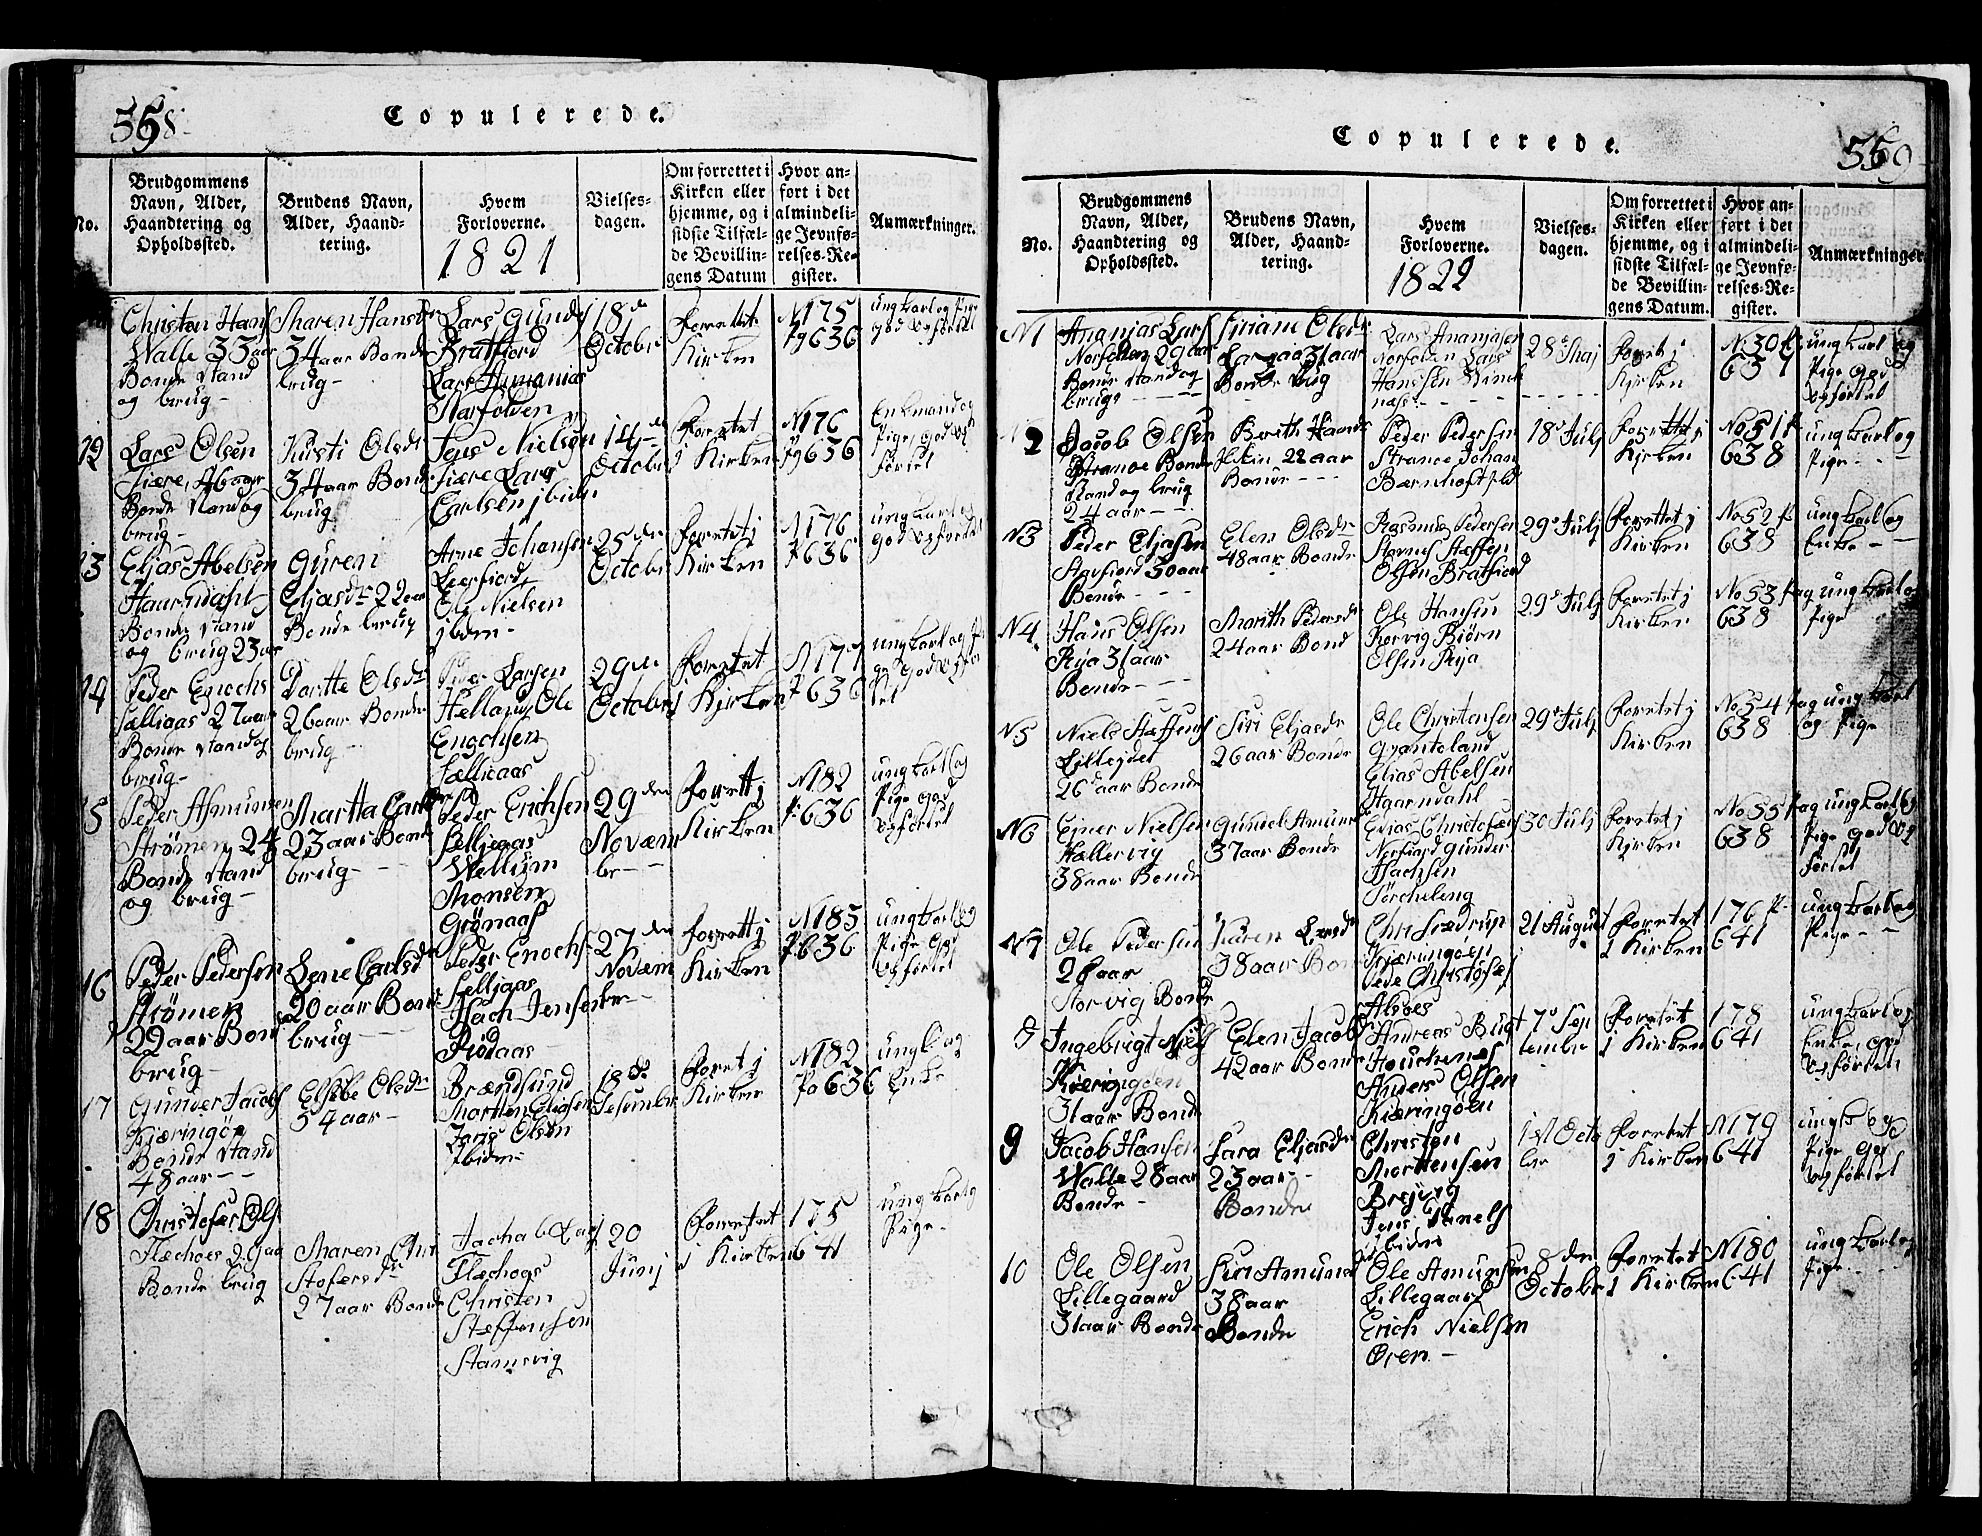 558
Copulerede.
No.
Brudgommens
Navn, Alder,
Haandtering og
Opholdssted.
Brudens Navn,
Alder, Haand-
tering.
Hvem
Forloverne.
1821
Vielses-
dagen.
Om forrettet i
Kirken eller
hjemme, og i
sidste Tilfæl-
de Bevillin-
gens Datum
Hvor an-
ført i det
almindeli-
ge Jevnfø-
relses-Re-
gister.
Anmærkninger.
Christen Hans
Walle 33 aar
Bonde stand
og brug -
Maren Hansdr
34 aar Bonde
brug -
Lars Gunde
Bratfjord
Lars Annanias
Narfolden
18de
October
Forrettet
Kirken
N 175
pg 636
ung karl og Pige
god opførtel
12
Lars Olsen
Fiære, 46 aar
Bonde stand og
brug -
Kirsti Olsdr
34 aar Bonde
brug
Jens Nielsen
Fiære Lars
Carlsen ibidn
14de
October
Forrettet
i Kirken
N 176
Pg 636
Enkmand og
Pige, god op
førtel
13
Elias Abelsen
Haarndahl
Bonde stand
og brug 23 aar
Guren
Eliasdr 22 aar
Bonde brug
Arne Johansen
Leerfiord
Ole Nielsen
ibdm -
25de
October
Forrettet i
Kirken
N 176
P 636
ung karl og
god opførtel
14
Peder Enochs
Sælligaas 27 aar
Bonde stand og
brug -
Dortte Olsdr
26 aar Bonde
brug -
Peder Larsen
Helland Ole
Engchsen
Sælligaas
29de
October
Forrettet
i Kirken
N 177
P 636
ung karl og Pi
ge god opfør
tel
15
Peder Asmunsen
Strømen 24
Bonde stand
og brug -
Martha Carls
23 aar Bonde
brug -
Peder Erichsen
Selligaas
Wellum
Thomsen
Grønaas
29den
Novem
br -
Forrettj
Kirken
N 182
P 636
ung karl og
Pige god
opførtel
16
Peder Pedersen
Strømen
29 aar Bonde
brug -
Lene Carlsdr
20 aar Bonde
brug -
Peder Enochs
Selljaas
Isach Jensen
Rødaas -
27de
Novem
ber -
forrettj
Kirken
N 183
P 636
ung karl og
Pige god
opførtel
17
Gunder Jacobs
Kjæringøe
Bonde stand
48 aar -
Elsebe Olsdr
54 aar -
Brændsund
Marthen Eliasen
Jarig Olsen
Ibidm -
18de
Desember
Forret j
Kirken
N 182
Pa 636
ungk og
Enke
18
Christofer Ols
Flæchoes 29 aar
Bonde brug
Maren Chri
stofersdr
27 aar Bonde
Jacha b Lars
Flæchoas
Christen
Steffensen
Stamsvig
20
Junj
Forrettet
i Kirken
175
641
ung karl og
Pige -
559
Copulerede.
No.
Brudgommens
Navn, Alder,
Haandtering og
Opholdssted.
Brudens Navn,
Alder, Haand-
tering.
Hvem
Forloverne.
1822
Vielses-
dagen.
Om forrettet i
Kirken eller
hjemme, og i
sidste Tilfæl-
de Bevillin-
gens Datum.
Hvor an-
ført i det
almindeli-
ge Jevnfø-
relses-Re-
gister.
Anmærkninger
N 1
Ananias Lars
Norfolden 29 aar
Bonde stand og
brug -
Siriane Olsdr
31 aar
Bonde brug
Lars Ananiasen
Norfolden Lars
Hanssen Winch
næs -
28de Maj
Forrettj
Kirken
No 30 P
637
ung karl og
Pige god
opførtel
2
Jacob Olsen
Stranoe Bonde
stand og brug
24 aar -
Berith Hans
22 aar
Bonde -
Peder Pedersen
Stranoe Johan
18de Julj
Forrettet j
Kirken
No 51 P
638
ung karl og
Pige -
N 3
Peder Eljasen
Stavfiord 30 aar
Bonde -
Elen Olsdr
48 aar Bonde
Rasmus Pedersen
Stavnes Steffen
Olsen Bratfiord
29de Julj
Forrettet j
Kirken
No 52 P
638
ung karl og
Enke -
N 4
Hans Olsen
Rija 31 aar
Bonde -
Marith Pedersdr
24 aar Bond
Ole Hansen
Korvig Biørn
Olsen Rija
29de Julj
Forrettet j
Kirken
No 53 Pag
638
ung karl og
Pige
N 5
Niels Steffens
Lillejdet
26 aar Bonde
Siri Eljasdr
26 aar Bonde
Ole Christensen
Grøntoland
Elias Abelsen
Haarndahl
29de Julj
Forrettet j
Kirken
No 54 Pag
638
ung karl
og Pige
N 6
Ejner Nielsen
Hællervig
38 aar Bonde
Gundel Amuns
37 aar Bonde
Elias Christofers
Norfiord Gunder
Isachsen
Førcheleng
30 Julj
Forrettet j
Kirken
No 55 Pag
638
ung karl og
Pige god op
førtel
N 7
Ole Pedersen
28 aar
Storvig Bonde
Karen Larsdr
38 aar Bonde
Chri Fredrup
Kjæringøen
Pede Christofs
Alsoes
21 August
Forrettet
i Kirken
176 P
641
ung karl og
Pige -
8
Ingebrigt Niels
Kiæringøen
31 aar Bonde
Elen Jacobs
42 aar Bonde
Andreas Bugt
Houchenes
Anders Olsen
Kiæringøen
7de Sep
tember
Forrettet
i Kirken
178
641
ung karl og
Enke, god
opførtel
9
Jacob Hansen
Walle 28 aar
Bonde -
Sara Eljasdr
23 aar -
Bonde
Christen
Morttensen
Brejvig
Jens
ibidm
1st Octo
ber
Forrettet
i Kirken
N 179
641
ungk og
Pige god
opførtel
10
Ole Olsen
Lillegaard
31 aar Bonde
Siri Amuns
38 aar
Bonde
Ole Amunsen
Lillegaard
Erich Nielsen
Øren -
8den
October
Forrettet
i Kirken
N 180
641
ung karl og
Pige -